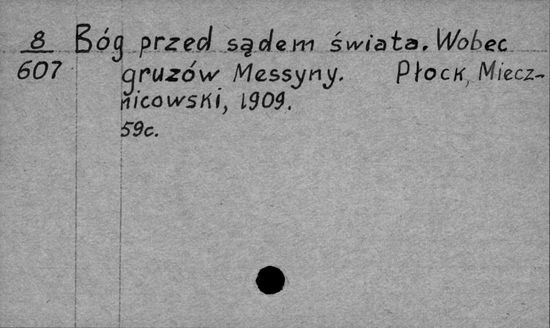 8 Bóg przed sądem świata. Wobec
607 gruzów Messyny. Płock, Miecz-
nicowski, 1909.
59c.